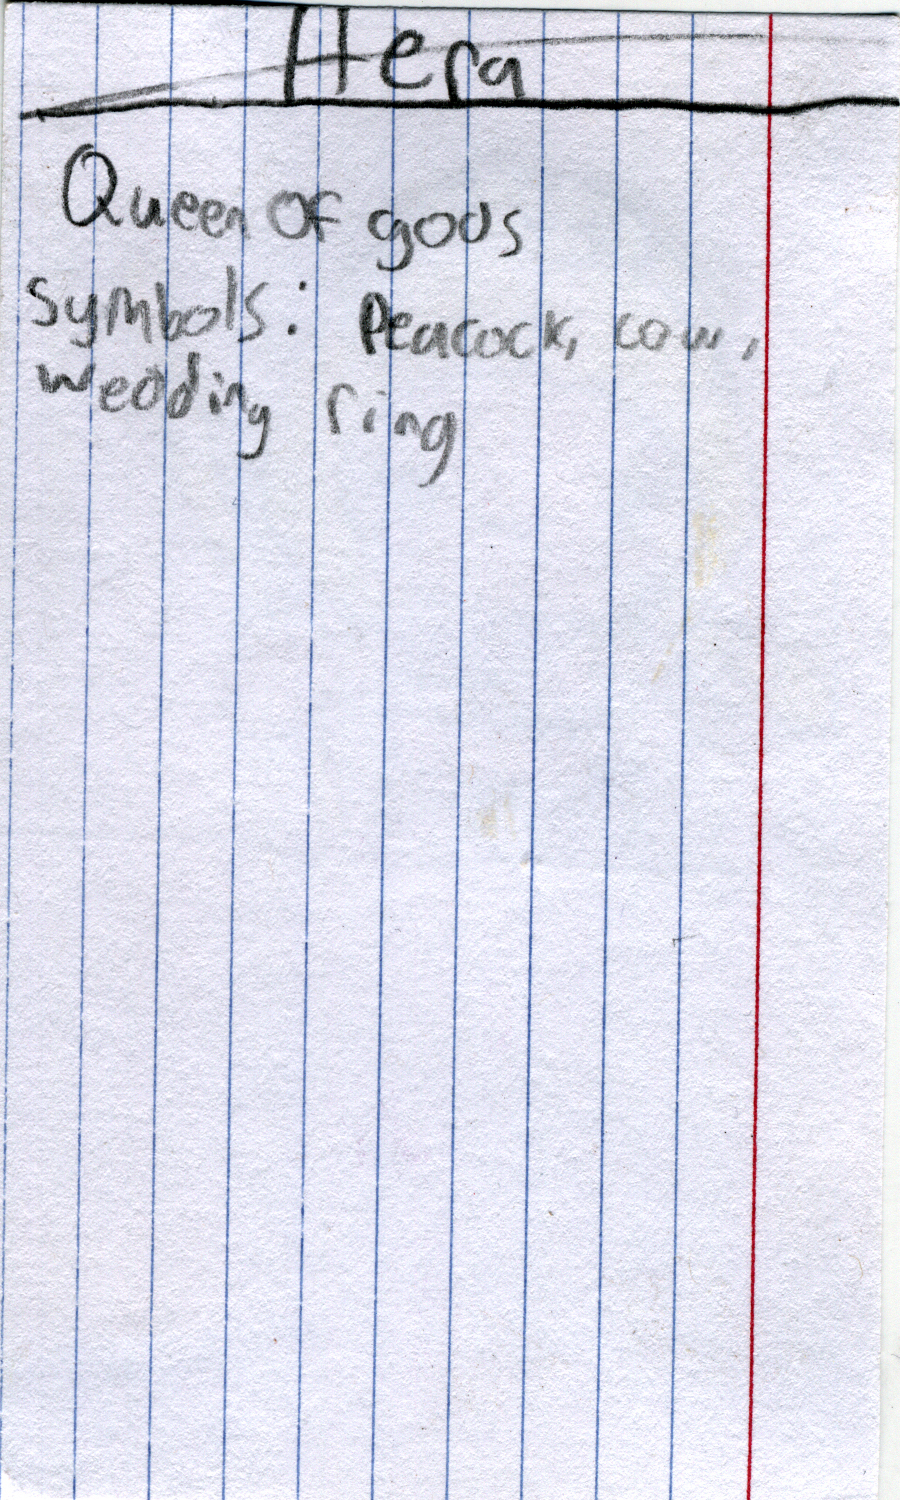 Hera
Queen of gods
Symbols: Peacock, cow,
wedding ring